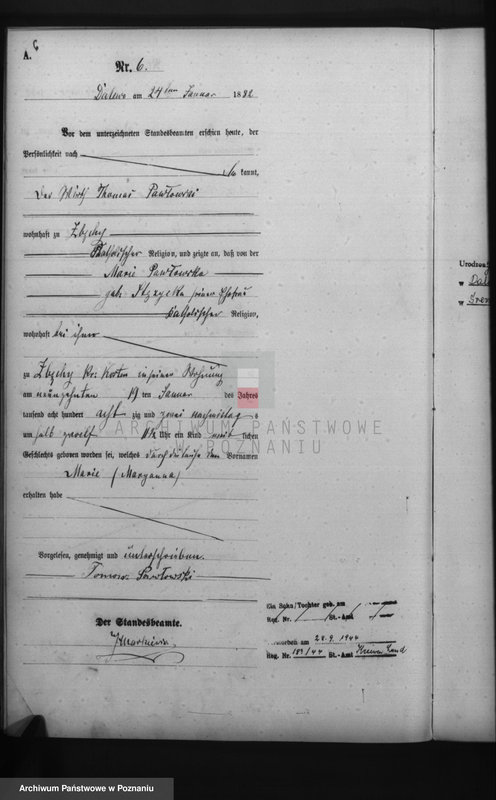 A. 6
Nr. 6.
Dalewo am 24ten Januar 1882
Vor dem unterzeichneten Standesbeamten erschien heute, der
Persönlichkeit nach
kannt,
der Wirth Thomas Pawłowski
wohnhaft zu Zbęchy
katholischer Religion, und zeigte an, daß von der
Marie Pawłowska
geb. seiner Ehefrau
katholischer Religion,
wohnhaft bei ihm
zu Zbęchy Kr: Kosten in seiner Wohnung
am neunzehnten 19 ten Januar des Jahres
tausend acht hundert achtzig und zwei nachmittags
um halb zwölf Uhr ein Kind weiblichen
Geschlechts geboren worden sei, welches den Vornamen
Marie (Maryanna)
erhalten habe
Vorgelesen, genehmigt und unterschrieben.
Tomasz Pawłowski
Der Standesbeamte.
Ein Sohn/Tochter geb. am
Reg. Nr. St.-Amt
gestorben am 28.9.1944
Reg. Nr. 183/44 St.-Amt
Urodzon
w Dal
w Śrem
ARCHIWUM PAŃSTWOWE
W POZNANIU
Archiwum Państwowe w Poznaniu